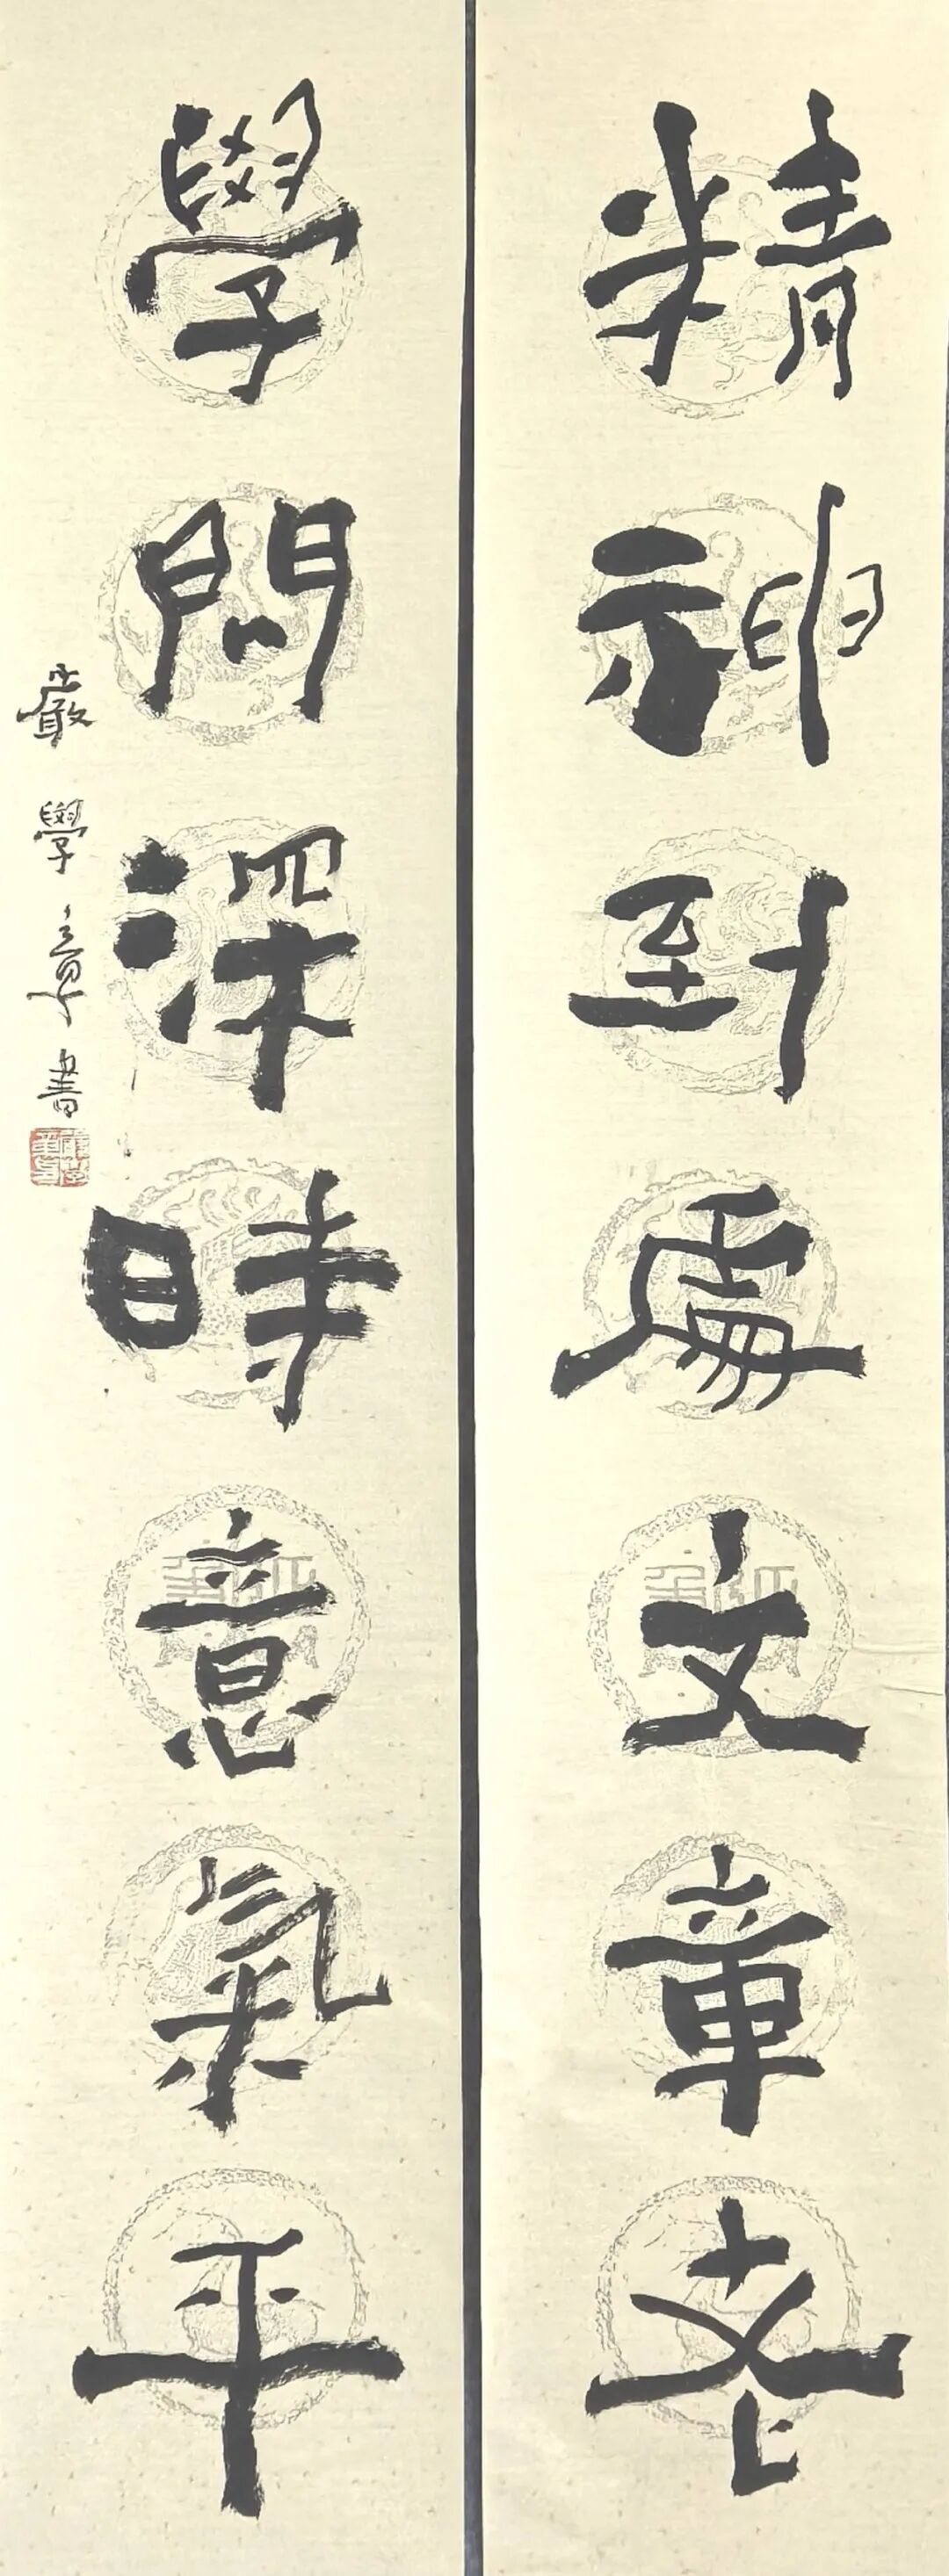 精神到處文章老
學問深時意氣平
嚴學章書